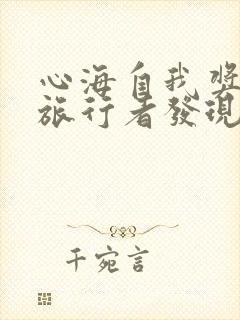 心海自我奬
旅行者發現
千宛言